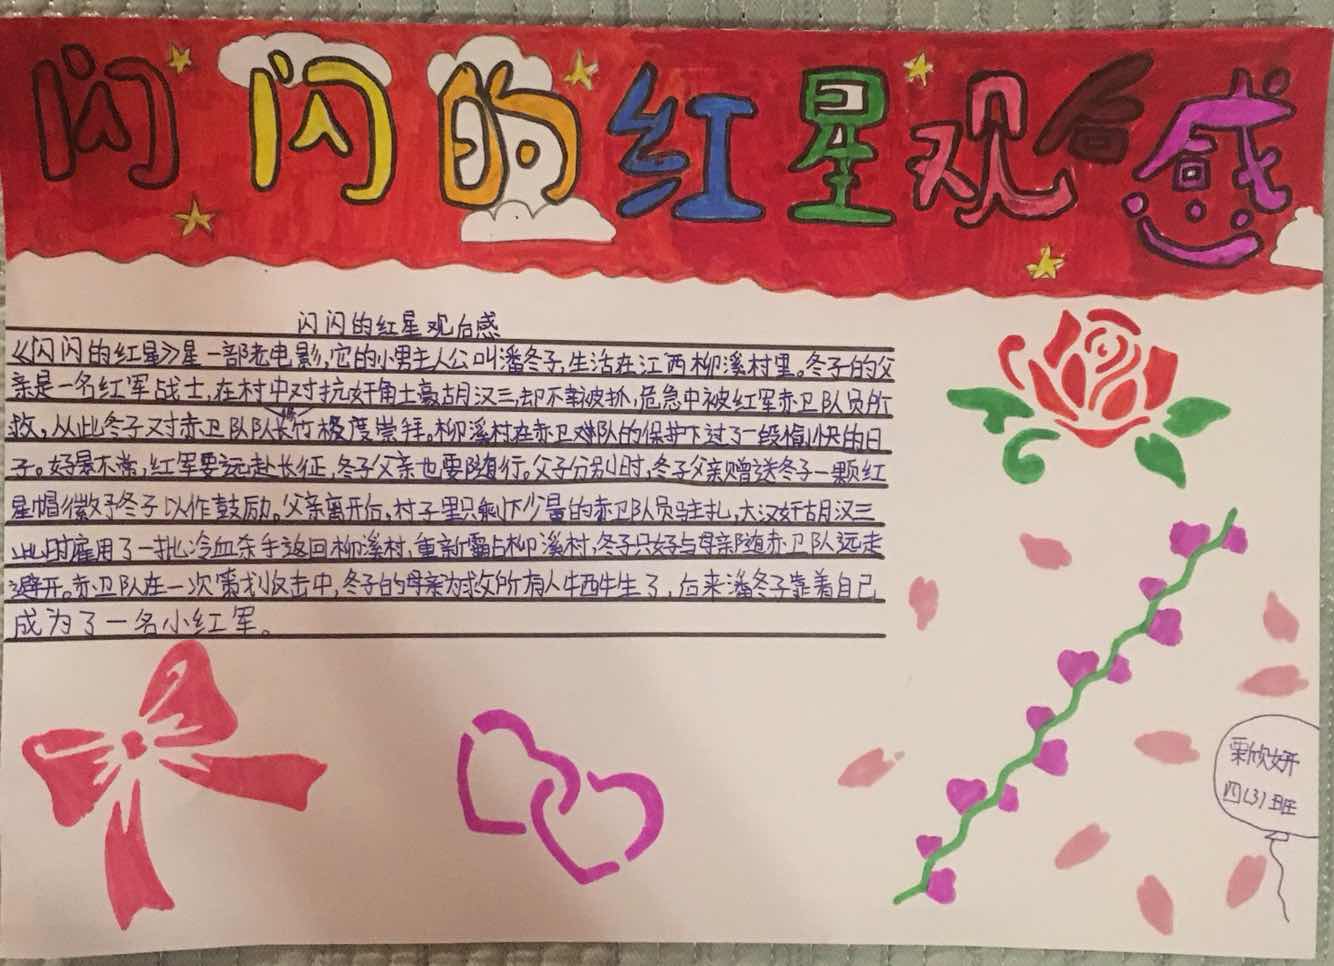 闪闪的红星观后感
闪闪的红星观后感
《闪闪的红星》星一部老电影,它的小男主人公叫潘冬子,生活在江西柳溪村里。冬子的父
亲是一名红军战士,在村中对抗奸角土豪胡汉三,却不幸被抓,危急中被红军赤卫队员所
救,从此冬子对赤卫队队长竹极度崇拜。柳溪村在赤卫队的保护下过了一段愉快的日
子。好景不常,红军要远赴长征,冬子父亲也要随行。父子分别时,冬子父亲赠送冬子一颗红
星帽徽予冬子以作鼓励。父亲离开后,村子里只剩下少量的赤卫队员驻扎,大汉奸胡汉三
此时雇用了一批冷血杀手返回柳溪村,重新霸占柳溪村,冬子只好与母亲随赤卫队远走
避开。赤卫队在一次策划收击中,冬子的母亲为救所有人牺牲了,后来潘冬子靠着自己
成为了一名小红军。
栗欣妍
四(3)班